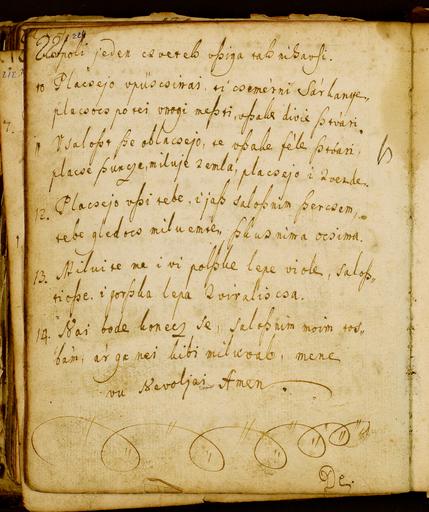 Zospoli jeden czveteb vßiga tah nikavsi.
10 Placsejo vpüscsinai, ti csemérni Sárkanye,,
placsocs po tei vnogi meßti, vßake divie ßtvári
11 Vsaloßt ße oblacsejo, te vßake féle ßtvári,
placse ßuncze, miluje zemla, placsejo i zvezde.
12. Placsejo vßi tebe, i jaß saloßnim ßerczem,,
tebe gledocs miluem te, ßkusnima ocsima.
13. Miluite me i vi polßke lepe viole, saloß,,
ti ose. i gorßka lepa zviraliscsa.
14. Nai bode konecz se, saloßnim moim tos,,
bam, ár ga nei kibi miluvab, mene
vu Nevoljai Amen
De.